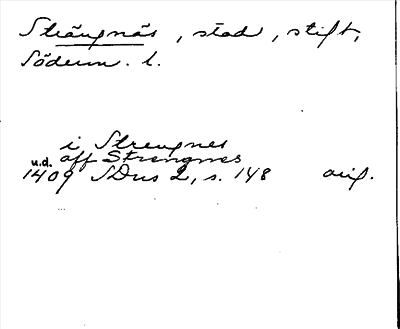 Strängnäs, stad, stift,
Söderm. l.
i Strengnes
aff Strengnes
u.d.
1409 SDns 2, s. 148 avig.